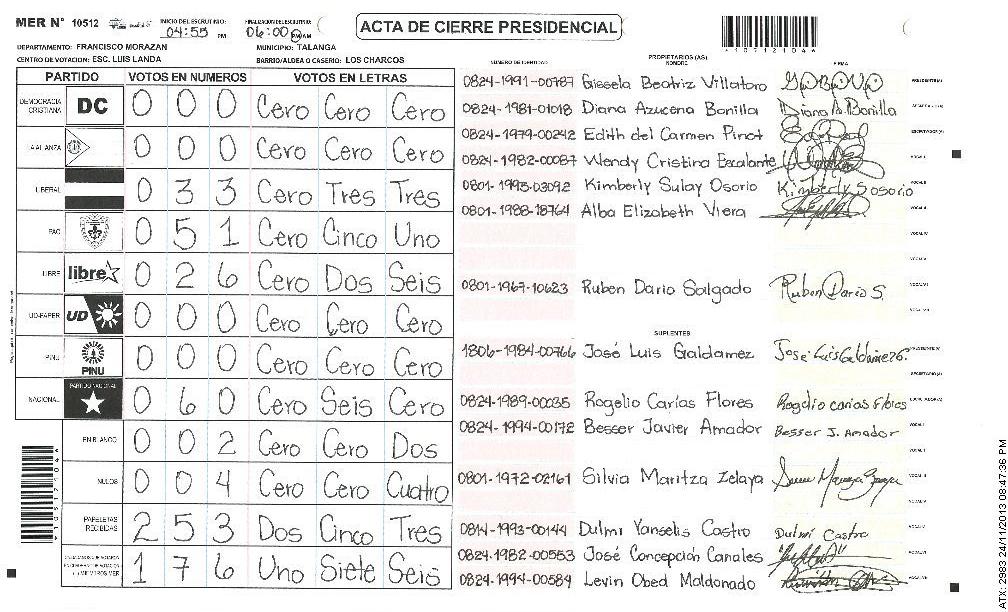 MER N° 10512
INICIO DEL ESCRUTINIO: 04:55 PM
FINALIZACION DEL ESCRUTINIO: 06:00 PM AM
ACTA DE CIERRE PRESIDENCIAL
DEPARTAMENTO: FRANCISCO MORAZAN
MUNICIPIO: TALANGA
CENTRO DE VOTACION: ESC. LUIS LANDA
BARRIO/ALDEA O CASERIO: LOS CHARCOS
PARTIDO VOTOS EN NUMEROS VOTOS EN LETRAS
DEMOCRACIA CRISTIANA DC 0 0 0 Cero Cero Cero
LA ALIANZA 0 0 0 Cero Cero Cero
LIBERAL 0 3 3 Cero Tres Tres
PAC 0 5 1 Cero Cinco Uno
LIBRE libre 0 2 6 Cero Dos Seis
UD-FAPER UD 0 0 0 Cero Cero Cero
PINU PINU 0 0 0 Cero Cero Cero
NACIONAL PARTIDO NACIONAL 0 6 0 Cero Seis Cero
EN BLANCO 0 0 2 Cero Cero Dos
NULOS 0 0 4 Cero Cero Cuatro
PAPELETAS RECIBIDAS 2 5 3 Dos Cinco Tres
1 7 6 Uno Siete Seis
NUMERO DE IDENTIDAD
PROPIETARIOS (AS)
NOMBRE
FIRMA
0824-1991-00787 Gissela Beatriz Villatoro
0824-1981-01018 Diana Azucena Bonilla Diana A. Bonilla
0824-1979-00242 Edith del Carmen Pinot
0824-1982-00087 Wendy Cristina Escalante
0801-1995-03092 Kimberly Sulay Osorio Kimberly S osorio
0801-1988-18764 Alba Elizabeth Viera
0801-1967-10623 Ruben Dario Salgado Ruben Dario S.
SUPLENTES
1806-1984-00766 José Luis Galdamez
0824-1989-00035 Rogelio Carías Flores Rogelio carias Flores
0824-1994-00172 Besser Javier Amador Besser J. Amador
0801-1972-02161 Silvia Maritza Zelaya
0814-1992-00144 Dulmi Yanselis Castro Dulmi Castro
0824-1982-00553 José Concepción Canales
0824-1994-00584 Levin Obed Maldonado
ATX: 2983 24/11/2013 08:47:36 PM